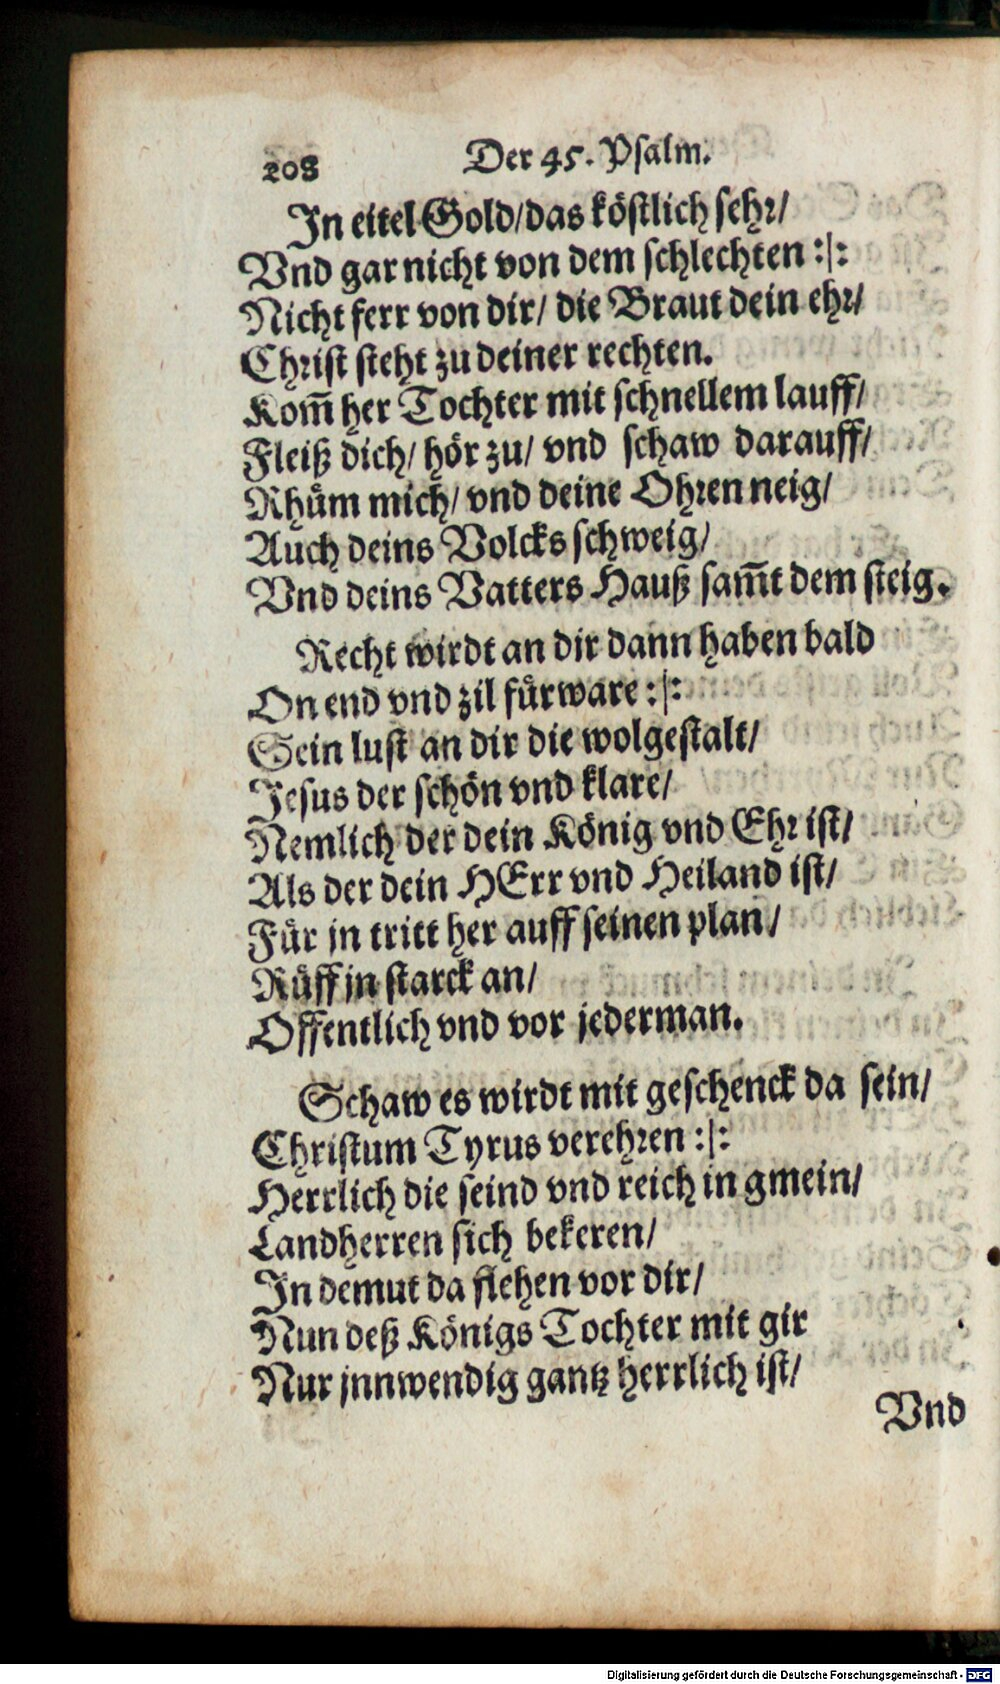 208 Der 45. Psalm.
In eitel Gold/das köstlich sehr/
Vnd gar nicht von dem schlechten :|:
Nicht ferr von dir/ die Braut dein ehr/
Christ steht zu deiner rechten.
Kom̃ her Tochter mit schnellem lauff/
Fleiß dich/ hör zu/ vnd schaw darauff/
Rhuͤm mich/ vnd deine Ohren neig/
Auch deins Volcks schweig/
Vnd deins Vatters Hauß sam̃t dem steig.
Recht wirdt an dir dann haben bald
On end vnd zil fuͤrware :|:
Sein lust an dir die wolgestalt/
Jesus der schoͤn vnd klare/
Nemlich der dein Koͤnig vnd Ehr ist/
Als der dein HErr vnd Heiland ist/
Fuͤr jn tritt her auff seinen plan/
Ruͤff jn starck an/
Offentlich vnd vor jederman.
Schaw es wirdt mit geschenck da sein/
Christum Tyrus verehren :|:
Herrlich die seind vnd reich in gmein/
Landherren sich bekeren/
In demut da flehen vor dir/
Nun deß Königs Tochter mit gir
Nur jnnwendig gantz herrlich ist/
Vnd
Digitalisierung gefördert durch die Deutsche Forschungsgemeinschaft - DFG